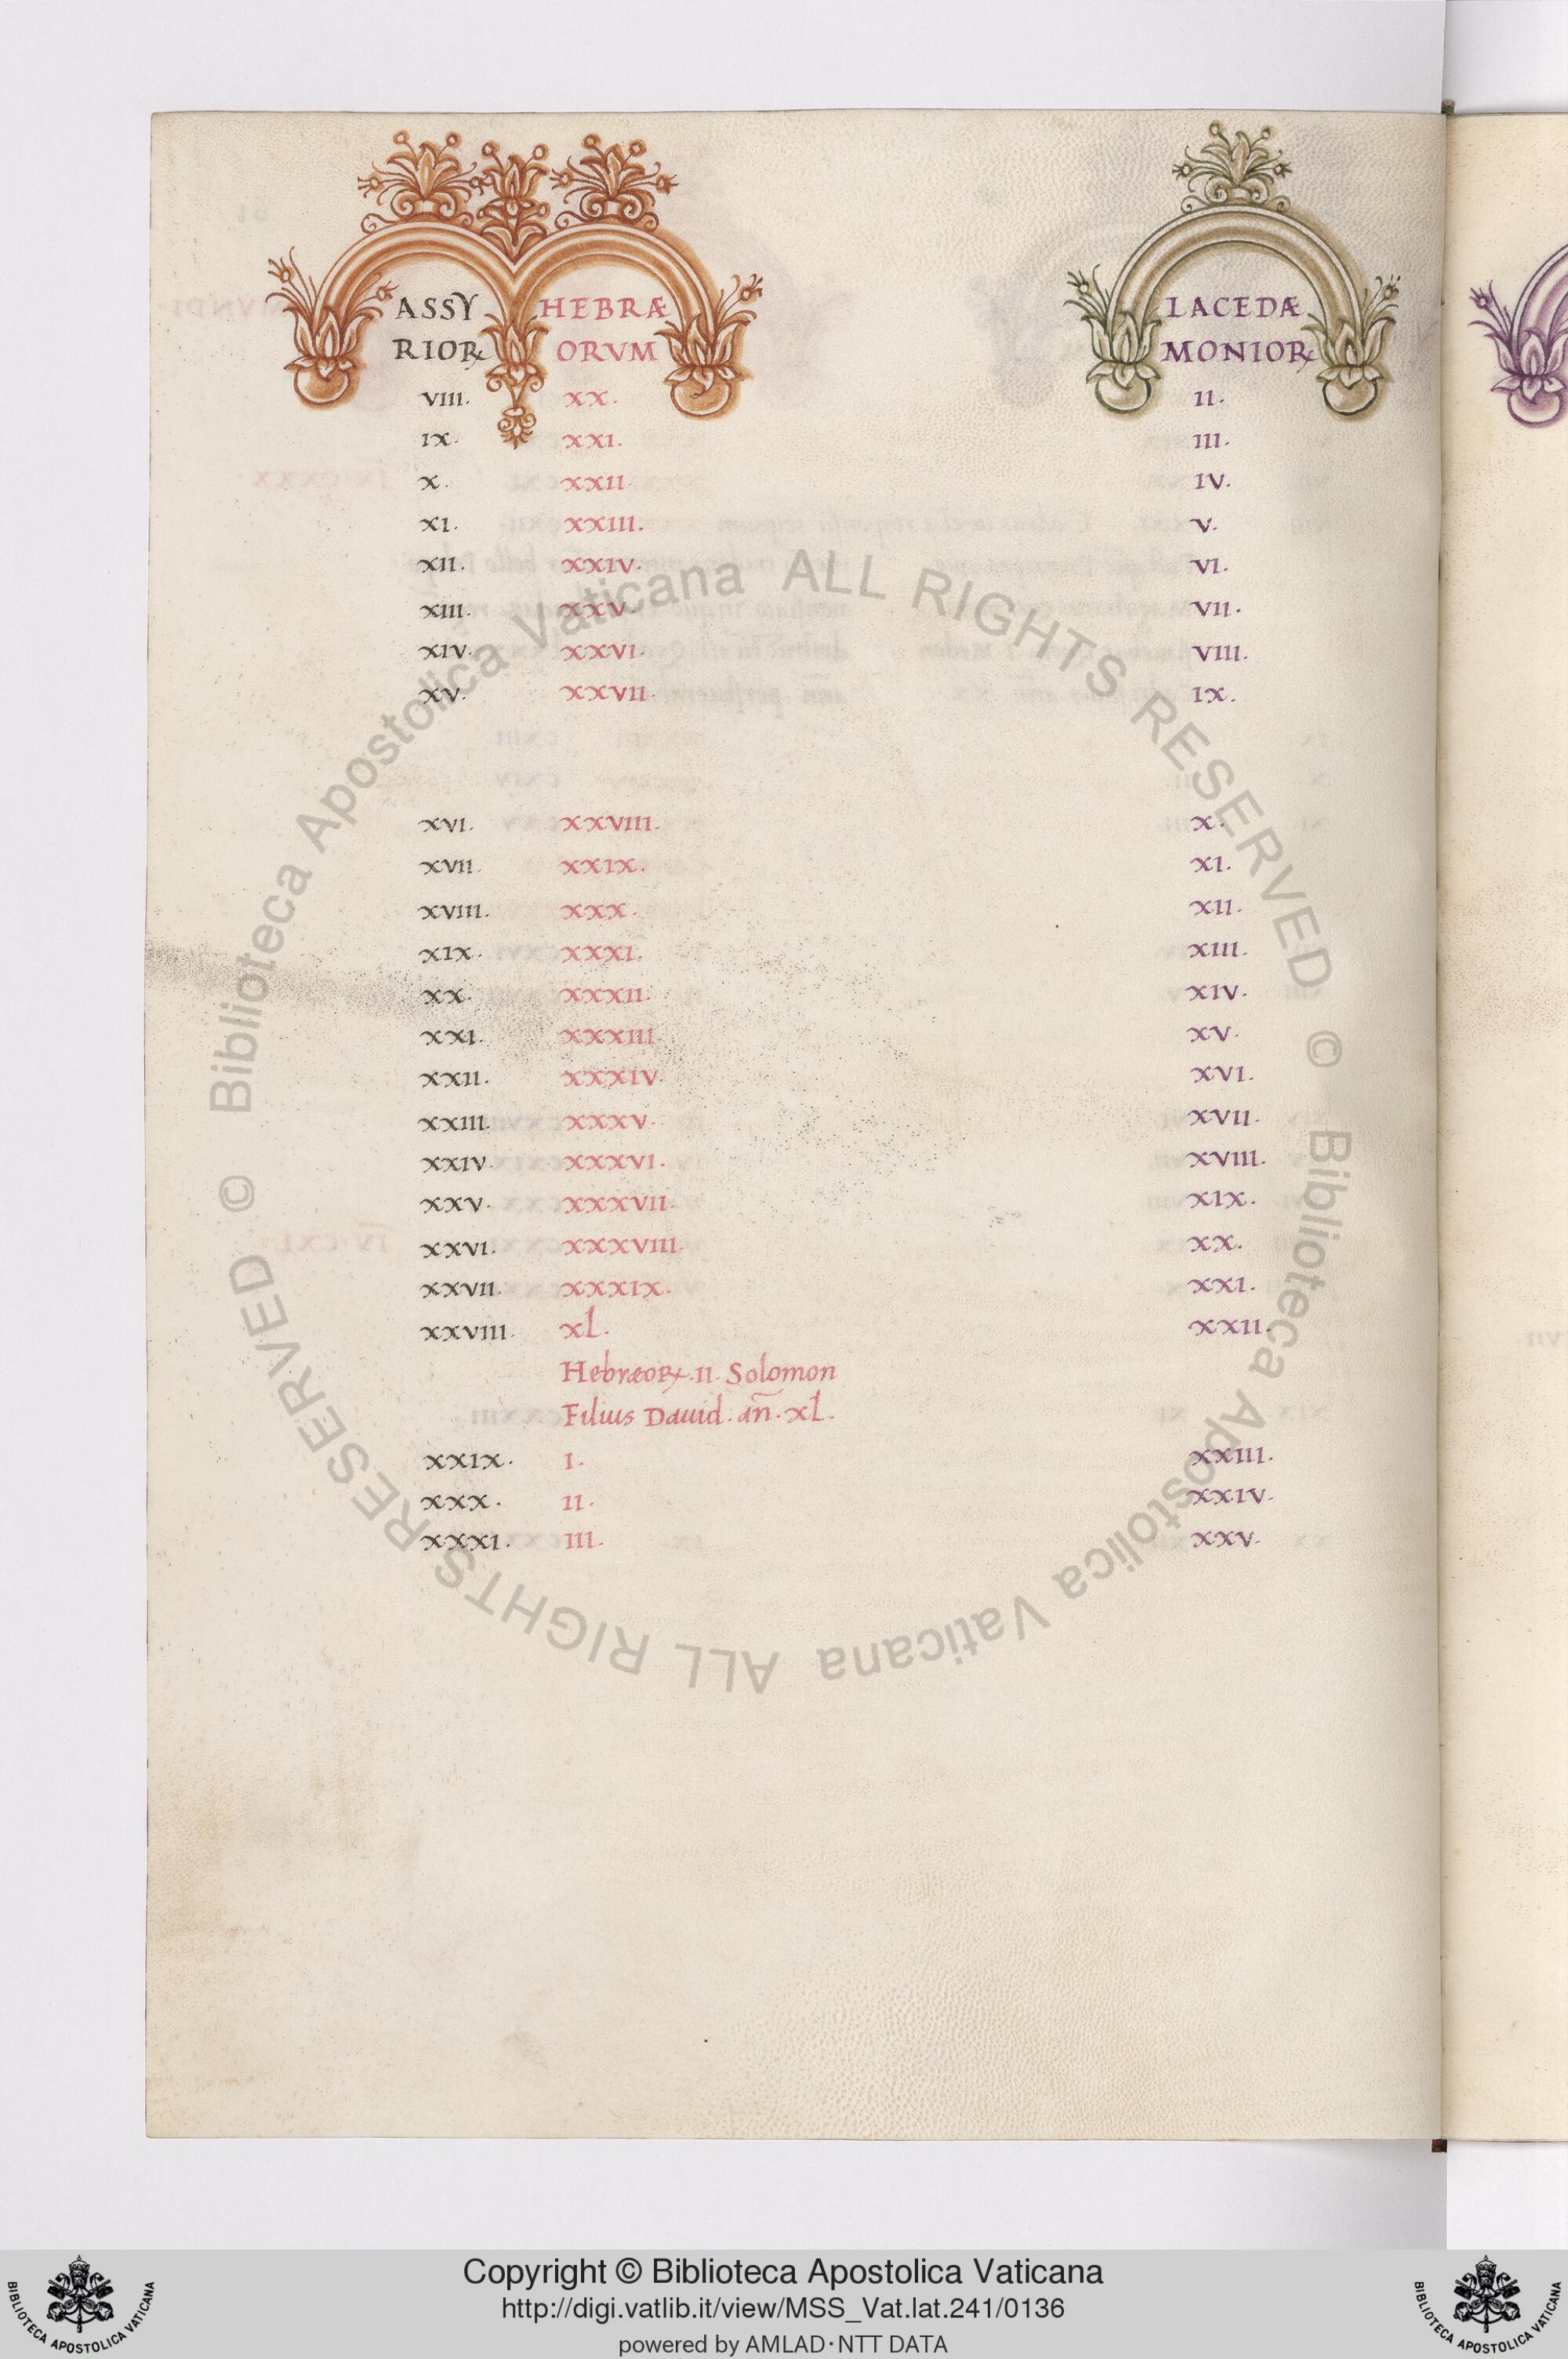 ASSY HEBRÆ LACEDÆ
RIOꝜ ORVM MONIOꝜ
VIII. XX. II.
IX. XXI. III.
X. XXII. IV.
XI. XXIII. V.
XII. XXIV. VI.
XIII. XXV. VII.
XIV. XXVI. VIII.
XV. XXVII. IX.
XVI. XXVIII. X.
XVII. XXIX. XI.
XVIII. XXX. XII.
XIX. XXXI. XIII.
XX. XXXII. XIV.
XXI. XXXIII. XV.
XXII. XXXIV. XVI.
XXIII. XXXV. XVII.
XXIV. XXXVI. XVIII.
XXV. XXXVII. XIX.
XXVI. XXXVIII. XX.
XXVII. XXXIX. XXI.
XXVIII. xl. XXII.
HebræoꝜ.II. Solomon
Filius Dauid. an̄. xl.
XXIX. I. XXIII.
XXX. II. XXIV.
XXXI. III. XXV.
© Biblioteca Apostolica Vaticana ALL RIGHTS RESERVED
© Biblioteca Apostolica Vaticana ALL RIGHTS RESERVED
Copyright © Biblioteca Apostolica Vaticana
http://digi.vatlib.it/view/MSS_Vat.lat.241/0136
powered by AMLAD·NTT DATA
BIBLIOTECA APOSTOLICA VATICANA
BIBLIOTECA APOSTOLICA VATICANA